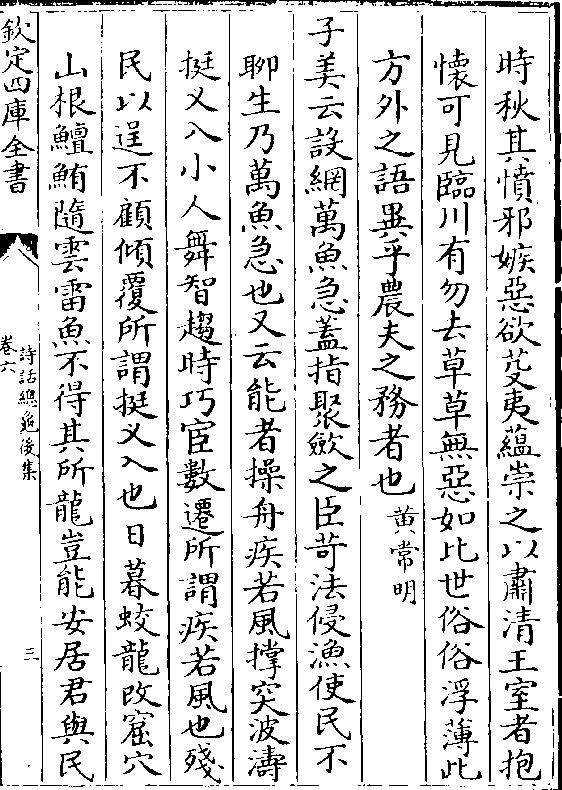 時秋其憤邪嫉惡欲芟夷蘊崇之以肅清王室者抱
懐可見臨川有勿去草草無惡如比世俗俗浮薄此
方外之語異乎農夫之務者也黄常明
子美云設網萬魚急蓋指聚斂之臣苛法侵漁使民不
聊生乃萬魚急也又云能者操舟疾若風撑突波濤
挺义入小人舞智趨時巧宦數遷所謂疾若風也殘
民以逞不顧傾覆所謂挺义入也日暮蛟龍改窟穴
山根鱣鮪隨雲雷魚不得其所龍豈能安居君與民
欽定四庫全書
詩話總龜後集
卷六
三